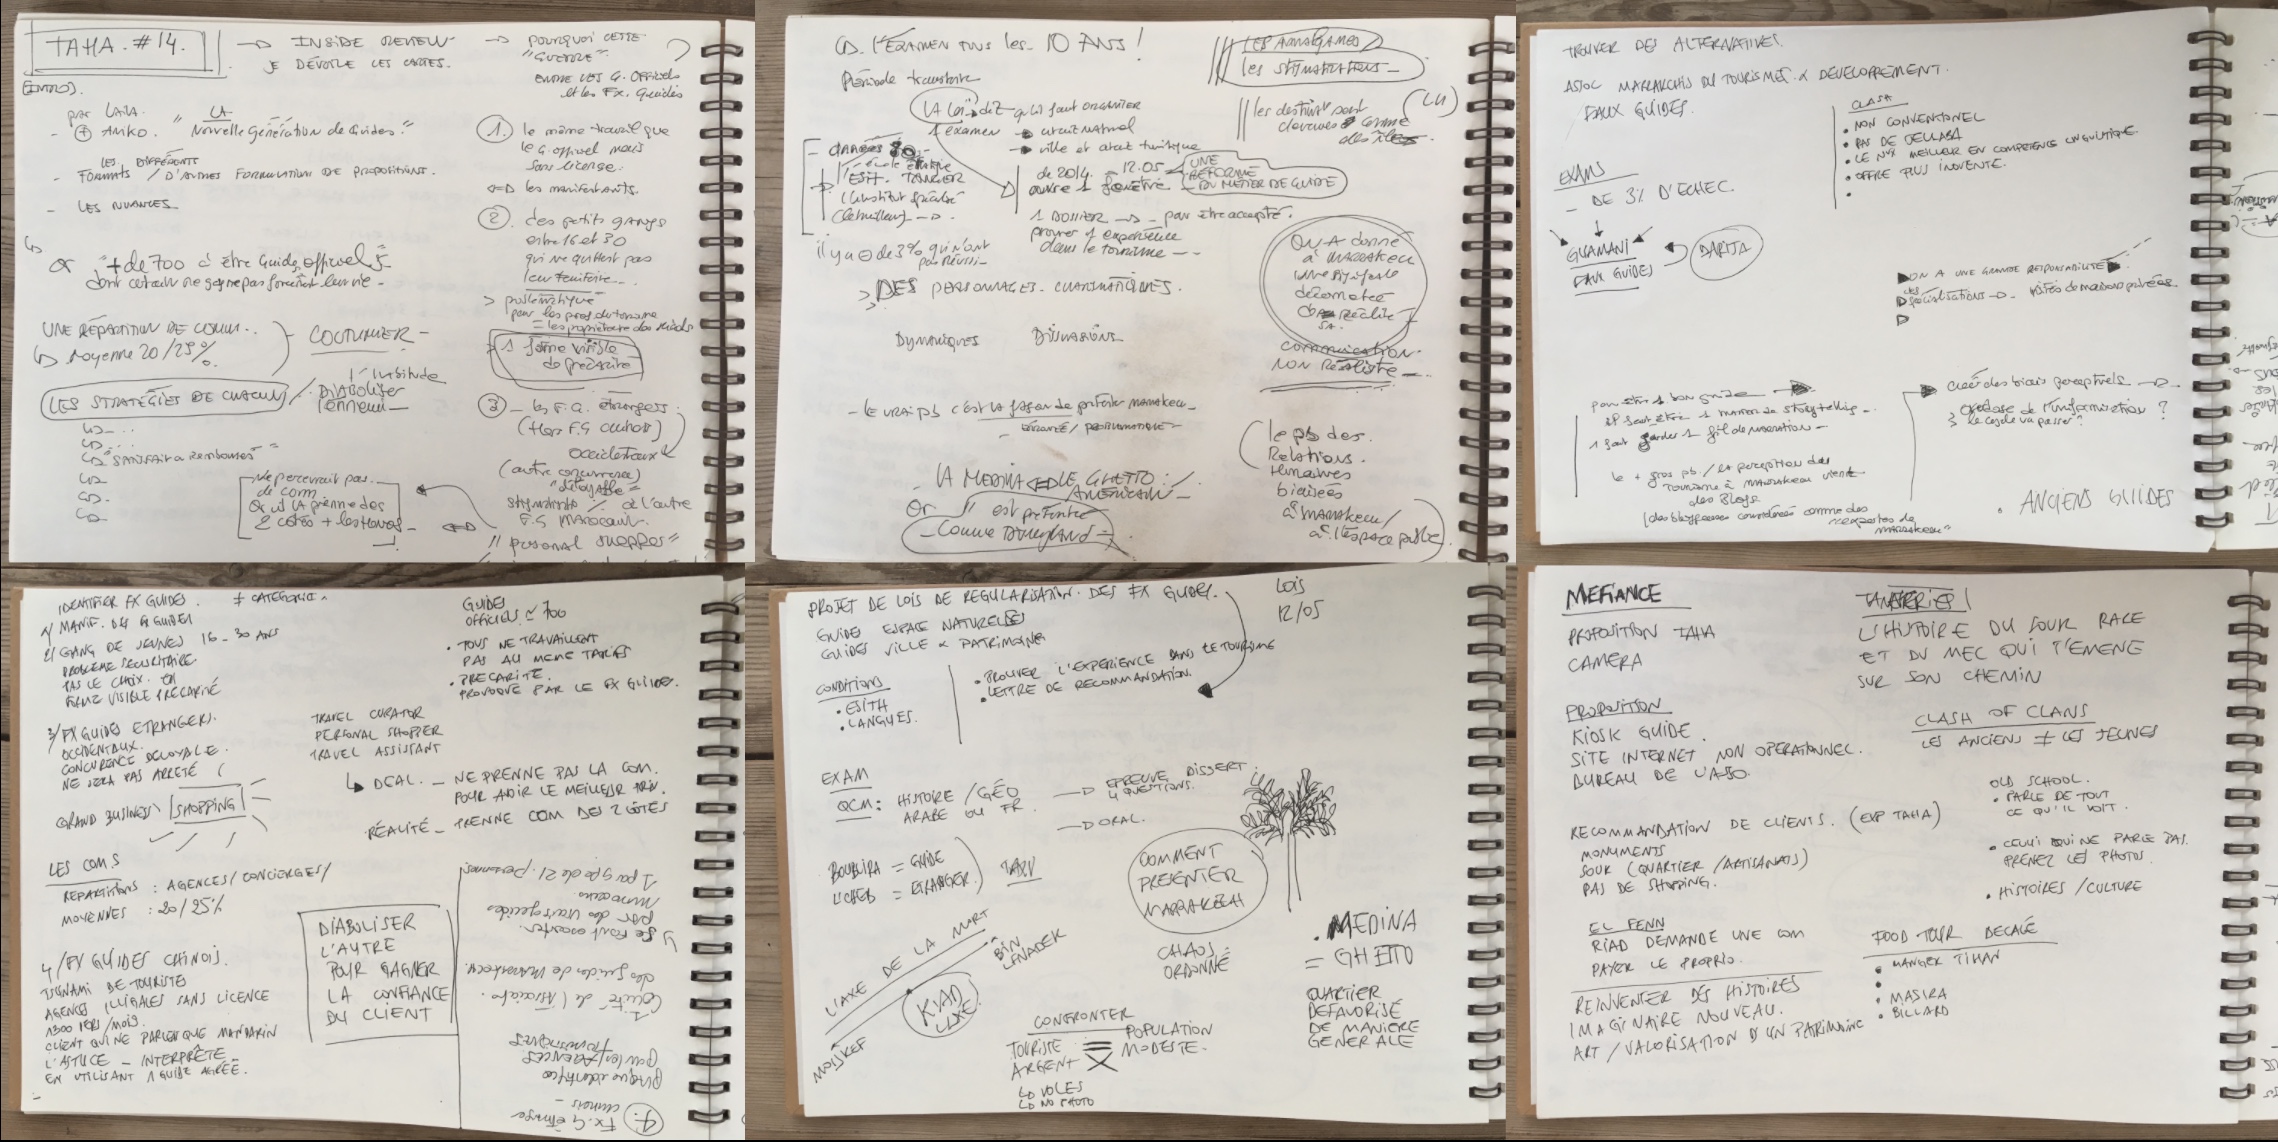 TAHA. #14.
→ INSIDE REVIEW
JE DÉVOILE LES CARTES.
→ POURQUOI CETTE "GUERRE"
ENTRE LES G. OFFICIELS
et les Fx. Guides
(INTRO).
par LAILA.
- ⊕ AMKO. "LA Nouvelle génération de Guides."
- LES DIFFÉRENTS FORMATS / D'AUTRES FORMULATION DE PROPOSITIONS.
- LES NUANCES
or "+ de 700 à être Guide officiel"
dont certain ne gagne pas forcément leur vie -
UNE RÉPARTITION DE COMM..
↳ Moyenne 20/25%.
COUTUMIER -
l'habitude
LES STRATÉGIES DE CHACUN / DIABOLISER
l'ennemi -
"SATISFAIT ou REMBOURSÉ"
ne percevrait pas
de com
or il LA prenne des
2 cotés +
1. le même travail que
le G. officiel mais
sans license.
2. des petits gangs
entre 16 et 30
qui ne quittent pas
leur territoire...
> problématique
pour les pros. du tourisme
= les propriétaire des Riads
1 forme visible
de précarité
3 - les F.G. étrangers.
occidentaux
(autre concurrence)
"déloyale"
à l'autre
F.G MAROCAIN.
"personal shopper"
L'EXAMEN TOUS les 10 ANS !
Période transitoire
LA Loi dit qu'il faut organiser
1 examen → circuit naturel
→ ville et circuit touristique
L'institut spécialisé
de 2014. - 12.05 UNE
RÉFORME
ouvre 1 fenêtre - DU MÉTIER DE GUIDE
1 DOSSIER → pour être accepté.
prouver 1 expérience
dans le tourisme - -
il y a ⊖ de 3% qui n'ont
pas réussi -
> DES PERSONNAGES CHARISMATIQUES.
DYNAMIQUES
LES AMALGAMES
les STIGMATISATIONS -
ON A donné
à MARRAKECH
communication
NON RÉALISTE -
- le vrai pb c'est la façon de présenter MARRAKECH -
LA MEDINA ↔ LE GHETTO
AMÉRICAIN -
or // est présentée
- Comme DISNEYLAND -
le pb des
Relations
Humaines
biaisées
à MARRAKECH /
à l'espace public
TROUVER DES ALTERNATIVES.
ASSOC MARRAKCHIS DU TOURISME & DEVELOPPEMENT.
FAUX GUIDES.
CLASH
• NON CONVENTIONEL
• PAS DE JELLABA
• LE NVX MEILLEUR EN COMPETENCE LINGUISTIQUE
• OFFRE PLUS INOVENTE.
EXAMS
- DE 3% D'ECHEC.
GUAMANI
FAUX GUIDES
DARIJA
ON A UNE GRANDE RESPONSABILITÉ
spécialisations → visites de maisons privées
pour être 1 bon guide
il faut être 1 manier de storytelling -
1 faut garder 1 fil de narration -
le + gros pb / la perception du
tourisme à MARRAKECH vient
des Blogs
créé des biais perceptuels
• ANCIENS GUIDES
IDENTIFIER FX GUIDES. ≠ CATEGORIE.
GANG DE JEUNES 16 - 30 ANS
PROBLEME SECURITAIRE
PAS LE CHOIX.
FORME VISIBLE PRECARITÉ
3/ FX GUIDES ETRANGERS.
OCCIDENTAUX.
CONCURENCE DELOYALE.
NE SERA PAS ARRETÉ
GRAND BUSINESS SHOPPING
LES COMS
REPARTITIONS : AGENCES / CONCIERGES /
MOYENNES : 20/25%
4/ FX GUIDES CHINOIS.
TSUNAMI DE TOURISTE
AGENCES ILLEGALES SANS LICENCE
1300 PERS/MOIS.
CLIENT QUI NE PARLENT QUE MANDARIN
L'ASTUCE - INTERPRÊTE -
EN UTILISANT 1 GUIDE AGRÉÉ.
GUIDES
OFFICIELS ≈ 700
• TOUS NE TRAVAILLENT
PAS AU MEME TARIFS
• PRECARITÉ.
PROVOQUÉ PAR LE FX GUIDE.
TRAVEL CURATOR
PERSONAL SHOPPER
TRAVEL ASSISTANT
↳ DEAL. - NE PRENNE PAS LA COM.
POUR AVOIR LE MEILLEUR PRIX.
RÉALITÉ - PRENNE COM DES 2 COTES
DIABOLISER
L'AUTRE
POUR GAGNER
LA CONFIANCE
DU CLIENT
1 par gpe de 21 personnes.
↳ se font escorter
par des vrais guides
marocains
des guides de Marrakech.
4. Fx. G étrange
chinois -
PROJET DE LOIS DE REGULARISATION. DES FX GUIDES.
LOIS
12/05
GUIDES ESPACE NATURELLES
GUIDES VILLE & PATRIMOINE
CONDITIONS
• ESITH
• LANGUES.
• PROUVER L'EXPERIENCE DANS LE TOURISME
• LETTRE DE RECOMMANDATION.
EXAM
QCM: HISTOIRE / GÉO
ARABE OU FR.
→ EPREUVE DISSERT.
4 QUESTIONS.
→ ORAL.
BOUBLIRA = GUIDE
L'CHEB = ETRANGER.
COMMENT
PRESENTER
MARRAKECH
L'AXE DE LA MORT
BIN LENADEK
MOUKEF
RIAD
LUXE.
CHAOS
ORDONNÉ
CONFRONTER
TOURISTE
ARGENT
POPULATION
MODESTE.
↳ VOLES
↳ NO PHOTO
• MEDINA
= GHETTO
QUARTIER
DEFAVORISÉ
DE MANIERE
GENERALE
MEFIANCE
PROPOSITION TAHA
CAMERA
PROPOSITION
KIOSK GUIDE.
SITE INTERNET NON OPERATIONNEL.
BUREAU DE L'ASSO.
RECOMMANDATION DE CLIENTS. (EXP TAHA)
MONUMENTS
SOUK (QUARTIER / ARTISANATS)
PAS DE SHOPPING.
EL FENN
RIAD DEMANDE UNE COM
PAYER LE PROPRIO.
REINVENTER DES HISTOIRES
IMAGINAIRE NOUVEAU.
ART / VALORISATION D'UN PATRIMOINE
TANNERIES !
L'HISTOIRE DU JOUR RARE
ET DU MEC QUI T'EMENE
SUR SON CHEMIN
CLASH OF CLANS
LES ANCIENS ≠ LES JEUNES
OLD SCHOOL.
• PARLE DE TOUT
CE QU'IL VOIT.
• CELUI QUI NE PARLE PAS.
PRENEZ LES PHOTOS.
• HISTOIRES / CULTURE
FOOD TOUR DECALÉ
• MANGER TIHAN
• MASIRA
• BILLARD